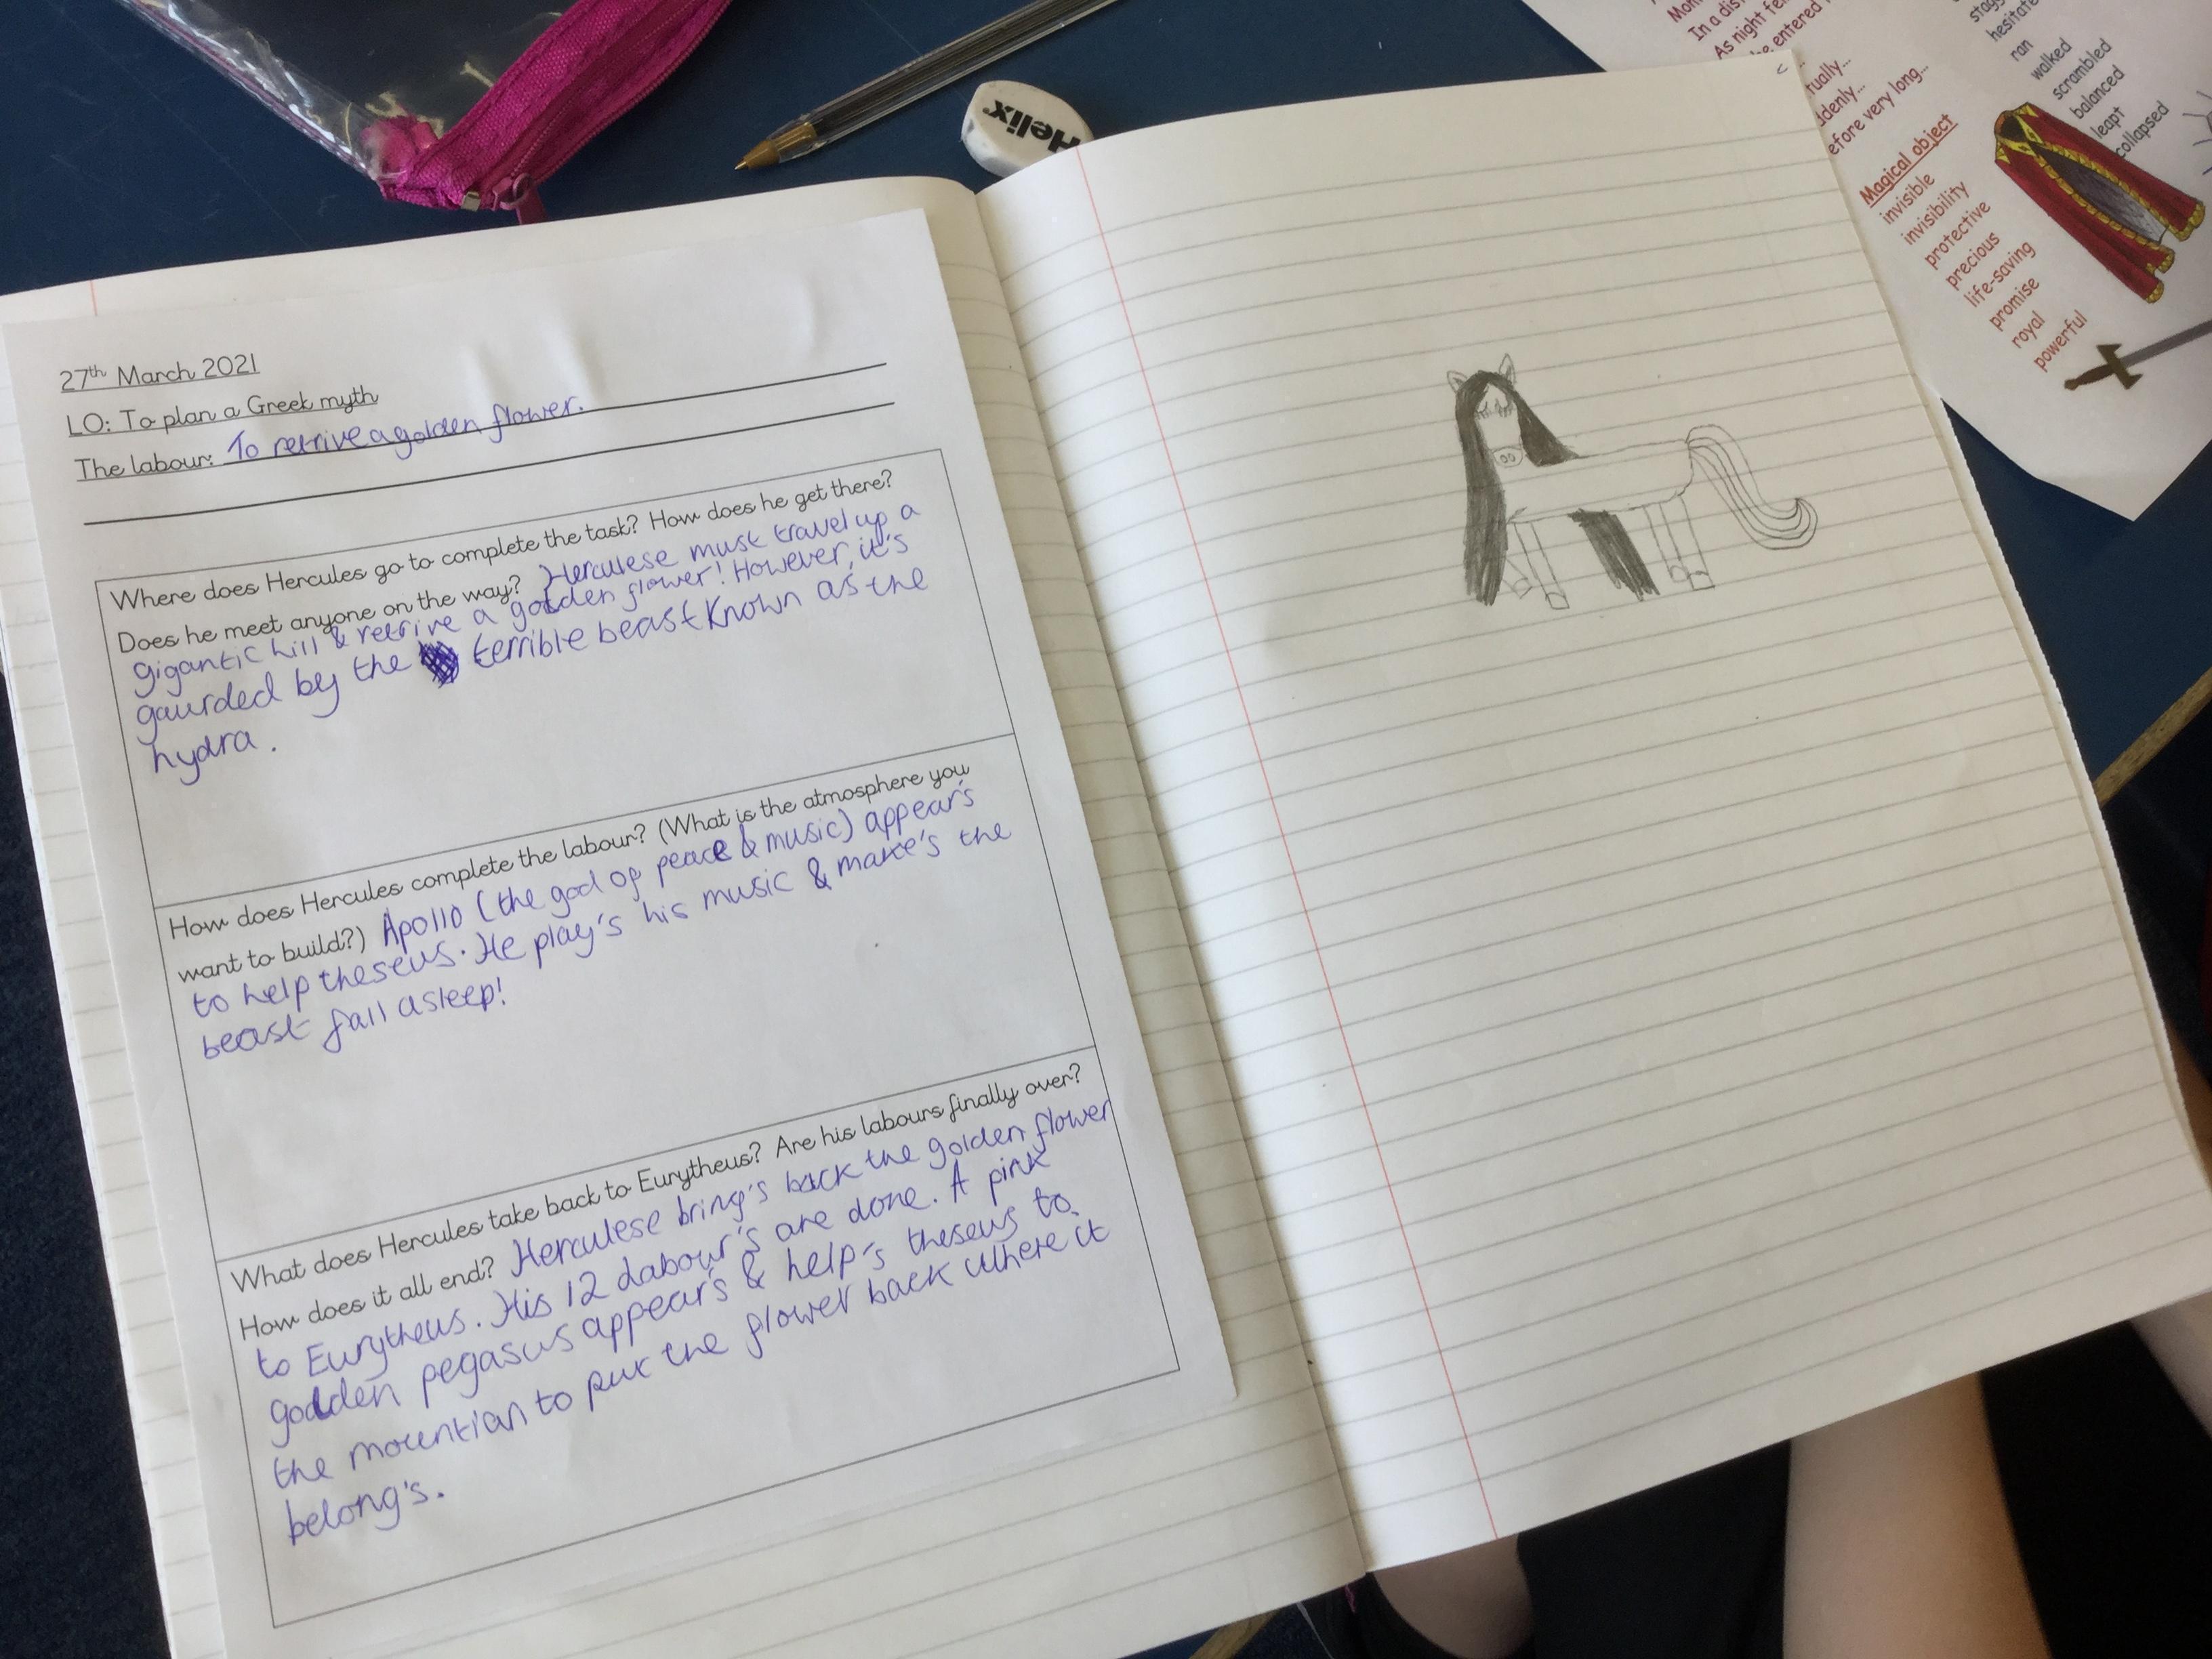 27th March 2021
LO: To plan a Greek myth
The labour: To retrive a golden flower.
Where does Hercules go to complete the task? How does he get there?
Does he meet anyone on the way? Herculese must travel up a
gigantic hill & retrive a golden flower! However, it's
gaurded by the terrible beast known as the
hydra.
How does Hercules complete the labour? (What is the atmosphere you
want to build?) Apollo (the god of peace & music) appear's
to help theseus. He play's his music & make's the
beast fall asleep!
What does Hercules take back to Eurytheus? Are his labours finally over?
How does it all end? Herculese bring's back the golden flower
to Eurytheus. His 12 labour's are done. A pink
golden pegasus appear's & help's theseus to
the mountian to put the flower back where it
belong's.
Helix
In a dis
As night fe
entered
tually...
ddenly...
efore very long...
Magical object
invisible
invisibility
protective
precious
life-saving
promise
royal
powerful
hesitate
ran
walked
scrambled
balanced
leapt
collapsed